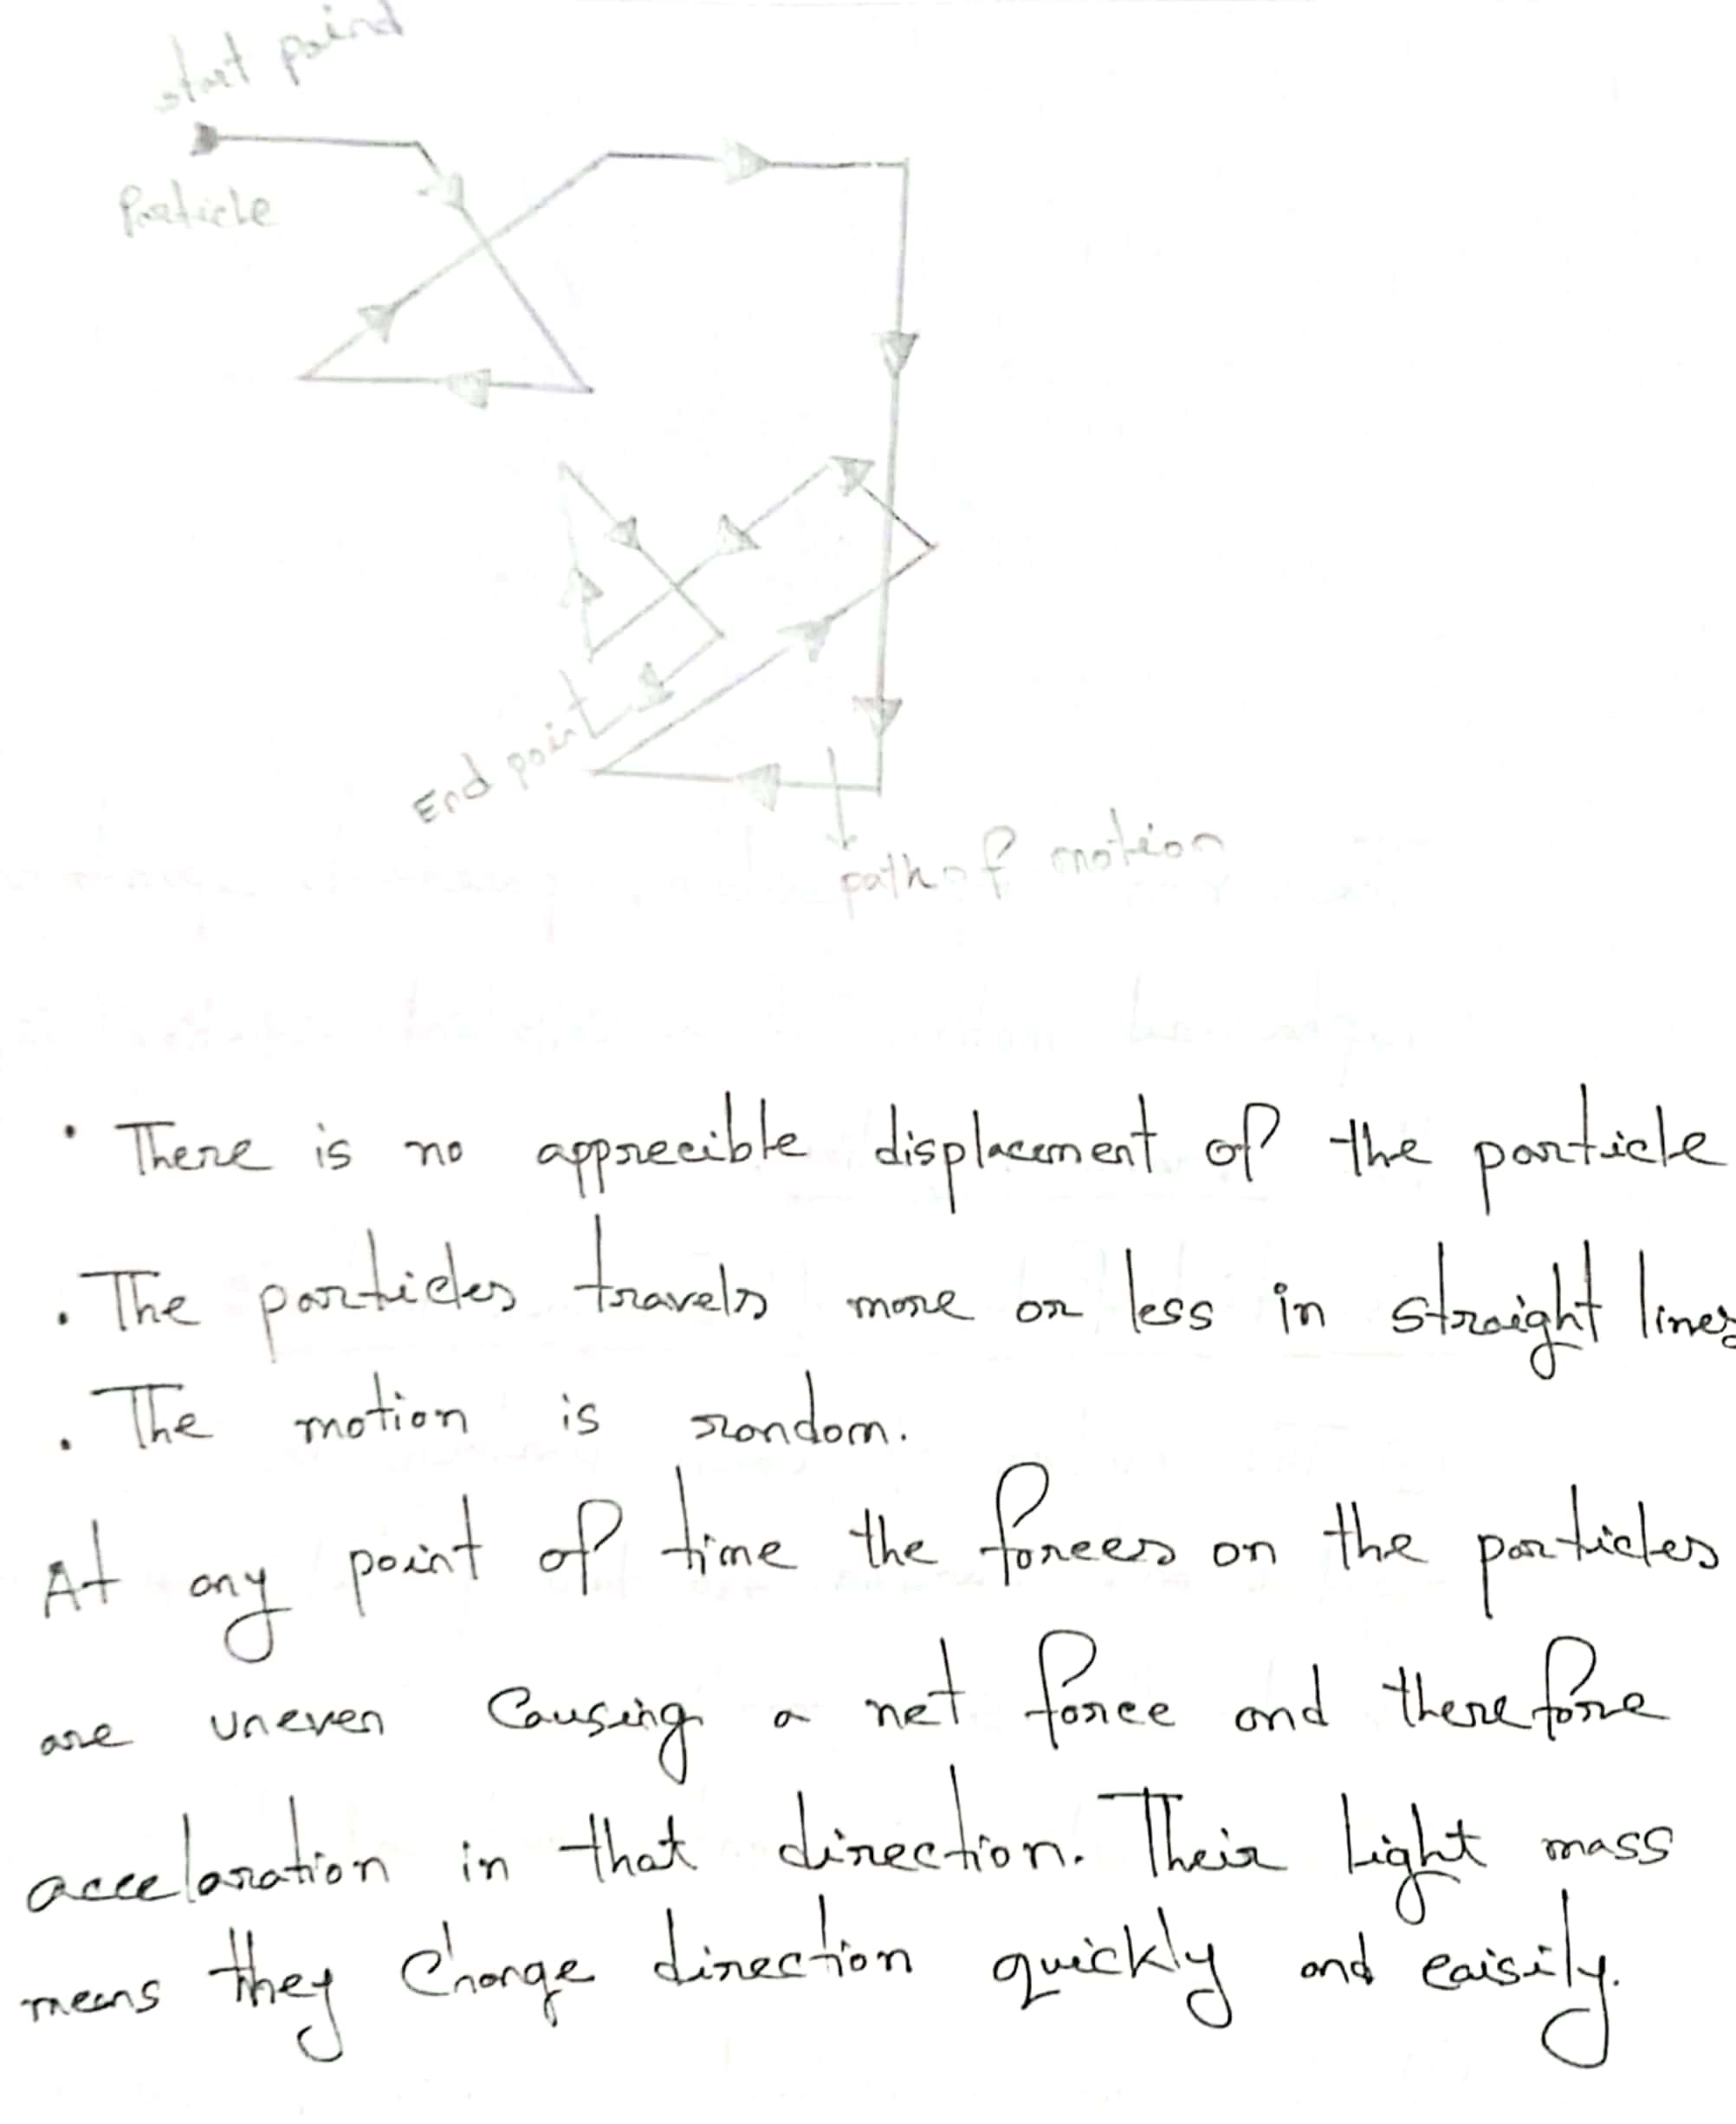 start point
Particle
End point
path of motion
• There is no apprecible displacement of the particle
. The particles travels more or less in straight lines
. The motion is random.
At any point of time the forces on the particles
are uneven causing a net force and therefore
accelaration in that direction. Their light mass
means they change direction quickly and eaisily.